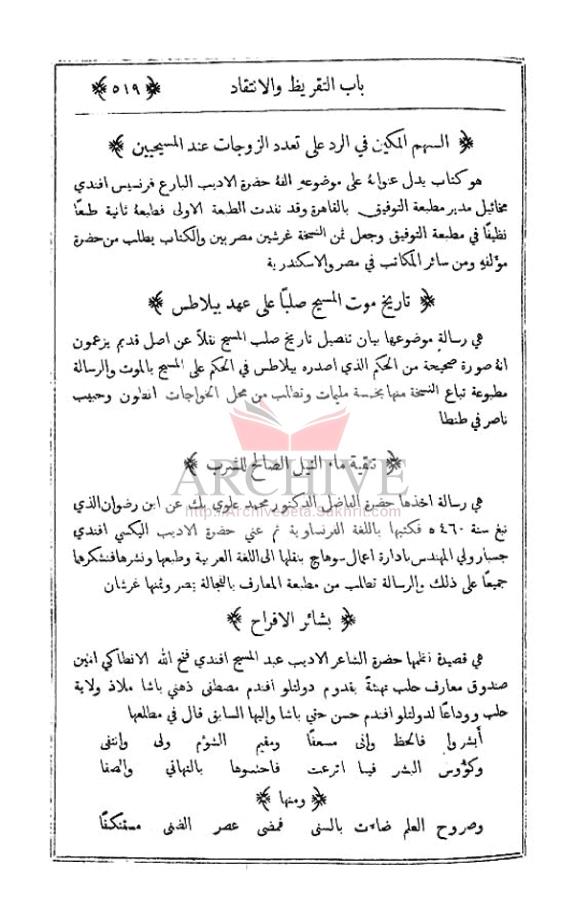 باب التقريظ والانتقاد ﴿٥١٩﴾
﴿ السهم المكين في الرد على تعدد الزوجات عند المسيحيين ﴾
هو كتاب يدل عنوانهُ على موضوعهِ الفهُ حضرة الاديب البارع فرنسيس افندي
مخائيل مدير مطبعة التوفيق بالقاهرة وقد نفدت الطبعة الاولى فطبعهُ ثانية طبعًا
نظيفًا في مطبعة التوفيق وجعل ثمن النسخة غرشين مصريين والكتاب يطلب من حضرة
مؤلفهِ ومن سائر المكاتب في مصر والاسكندرية
﴿ تاريخ موت المسيح صلبًا على عهد بيلاطس ﴾
هي رسالة موضوعها بيان تفصيل تاريخ صلب المسيح نقلاً عن اصل قديم يزعمون
انهُ صورة صحيحة من الحكم الذي اصدره بيلاطس في الحكم على المسيح بالموت والرسالة
مطبوعة تباع النسخة منها بخمسة مليمات وتطلب من محل الخواجات انطون وحبيب
ناصر في طنطا
﴿ تنقية ماء النيل الصالح للشرب ﴾
ARCHIVE
http://Archivebeta.Sakhrit.com
هي رسالة اخذها حضرة الفاضل الدكتور محمد علوي بك عن ابن رضوان الذي
نبغ سنة ٤٦٠ ه فكتبها باللغة الفرنساوية ثم عني حضرة الاديب اليكسي افندي
جسبارولي المهندس بادارة اعمال سوهاج بنقلها الى اللغة العربية وطبعها ونشرها فنشكرهما
جميعًا على ذلك والرسالة تطلب من مطبعة المعارف بالفجالة بمصر وثمنها غرشان
﴿ بشائر الافراح ﴾
هي قصيدة نظمها حضرة الشاعر الاديب عبد المسيح افندي فتح الله الانطاكي امين
صندوق معارف حلب تهنئةً بقدوم دولتلو افندم مصطفى ذهني باشا ملاذ ولاية
حلب ووداعًا لدولتلو افندم حسن حني باشا واليها السابق قال في مطلعها
أبشروا فالحظ وافى مسعفًا ومقيم الشؤم ولى وانتفى
وكؤوس البشر فينا اترعت فاحتسوها بالتهاني والصفا
﴿ ومنها ﴾
وصروح العلم ضاءت بالسنى فمضى عصر الضنى مستنكفًا